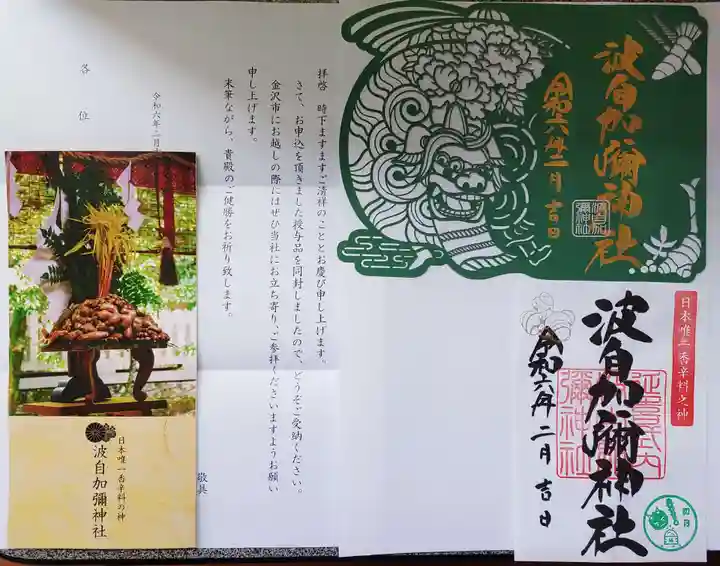 拝啓　時下ますますご清祥のこととお慶び申し上げます。
さて、お申込を頂きました授与品を同封しましたので、どうぞご受納ください。
金沢市にお越しの際にはぜひ当社にお立ち寄り、ご参拝くださいますようお願い
申し上げます。
末筆ながら、貴殿のご健勝をお祈り致します。
敬具
令和六年二月
各位
日本唯一香辛料の神
波自加彌神社
波自加彌神社
令和六年二月吉日
波自加
彌神社
日本唯一香辛料之神
波自加彌神社
延喜式内
彌神社
令和六年二月吉日